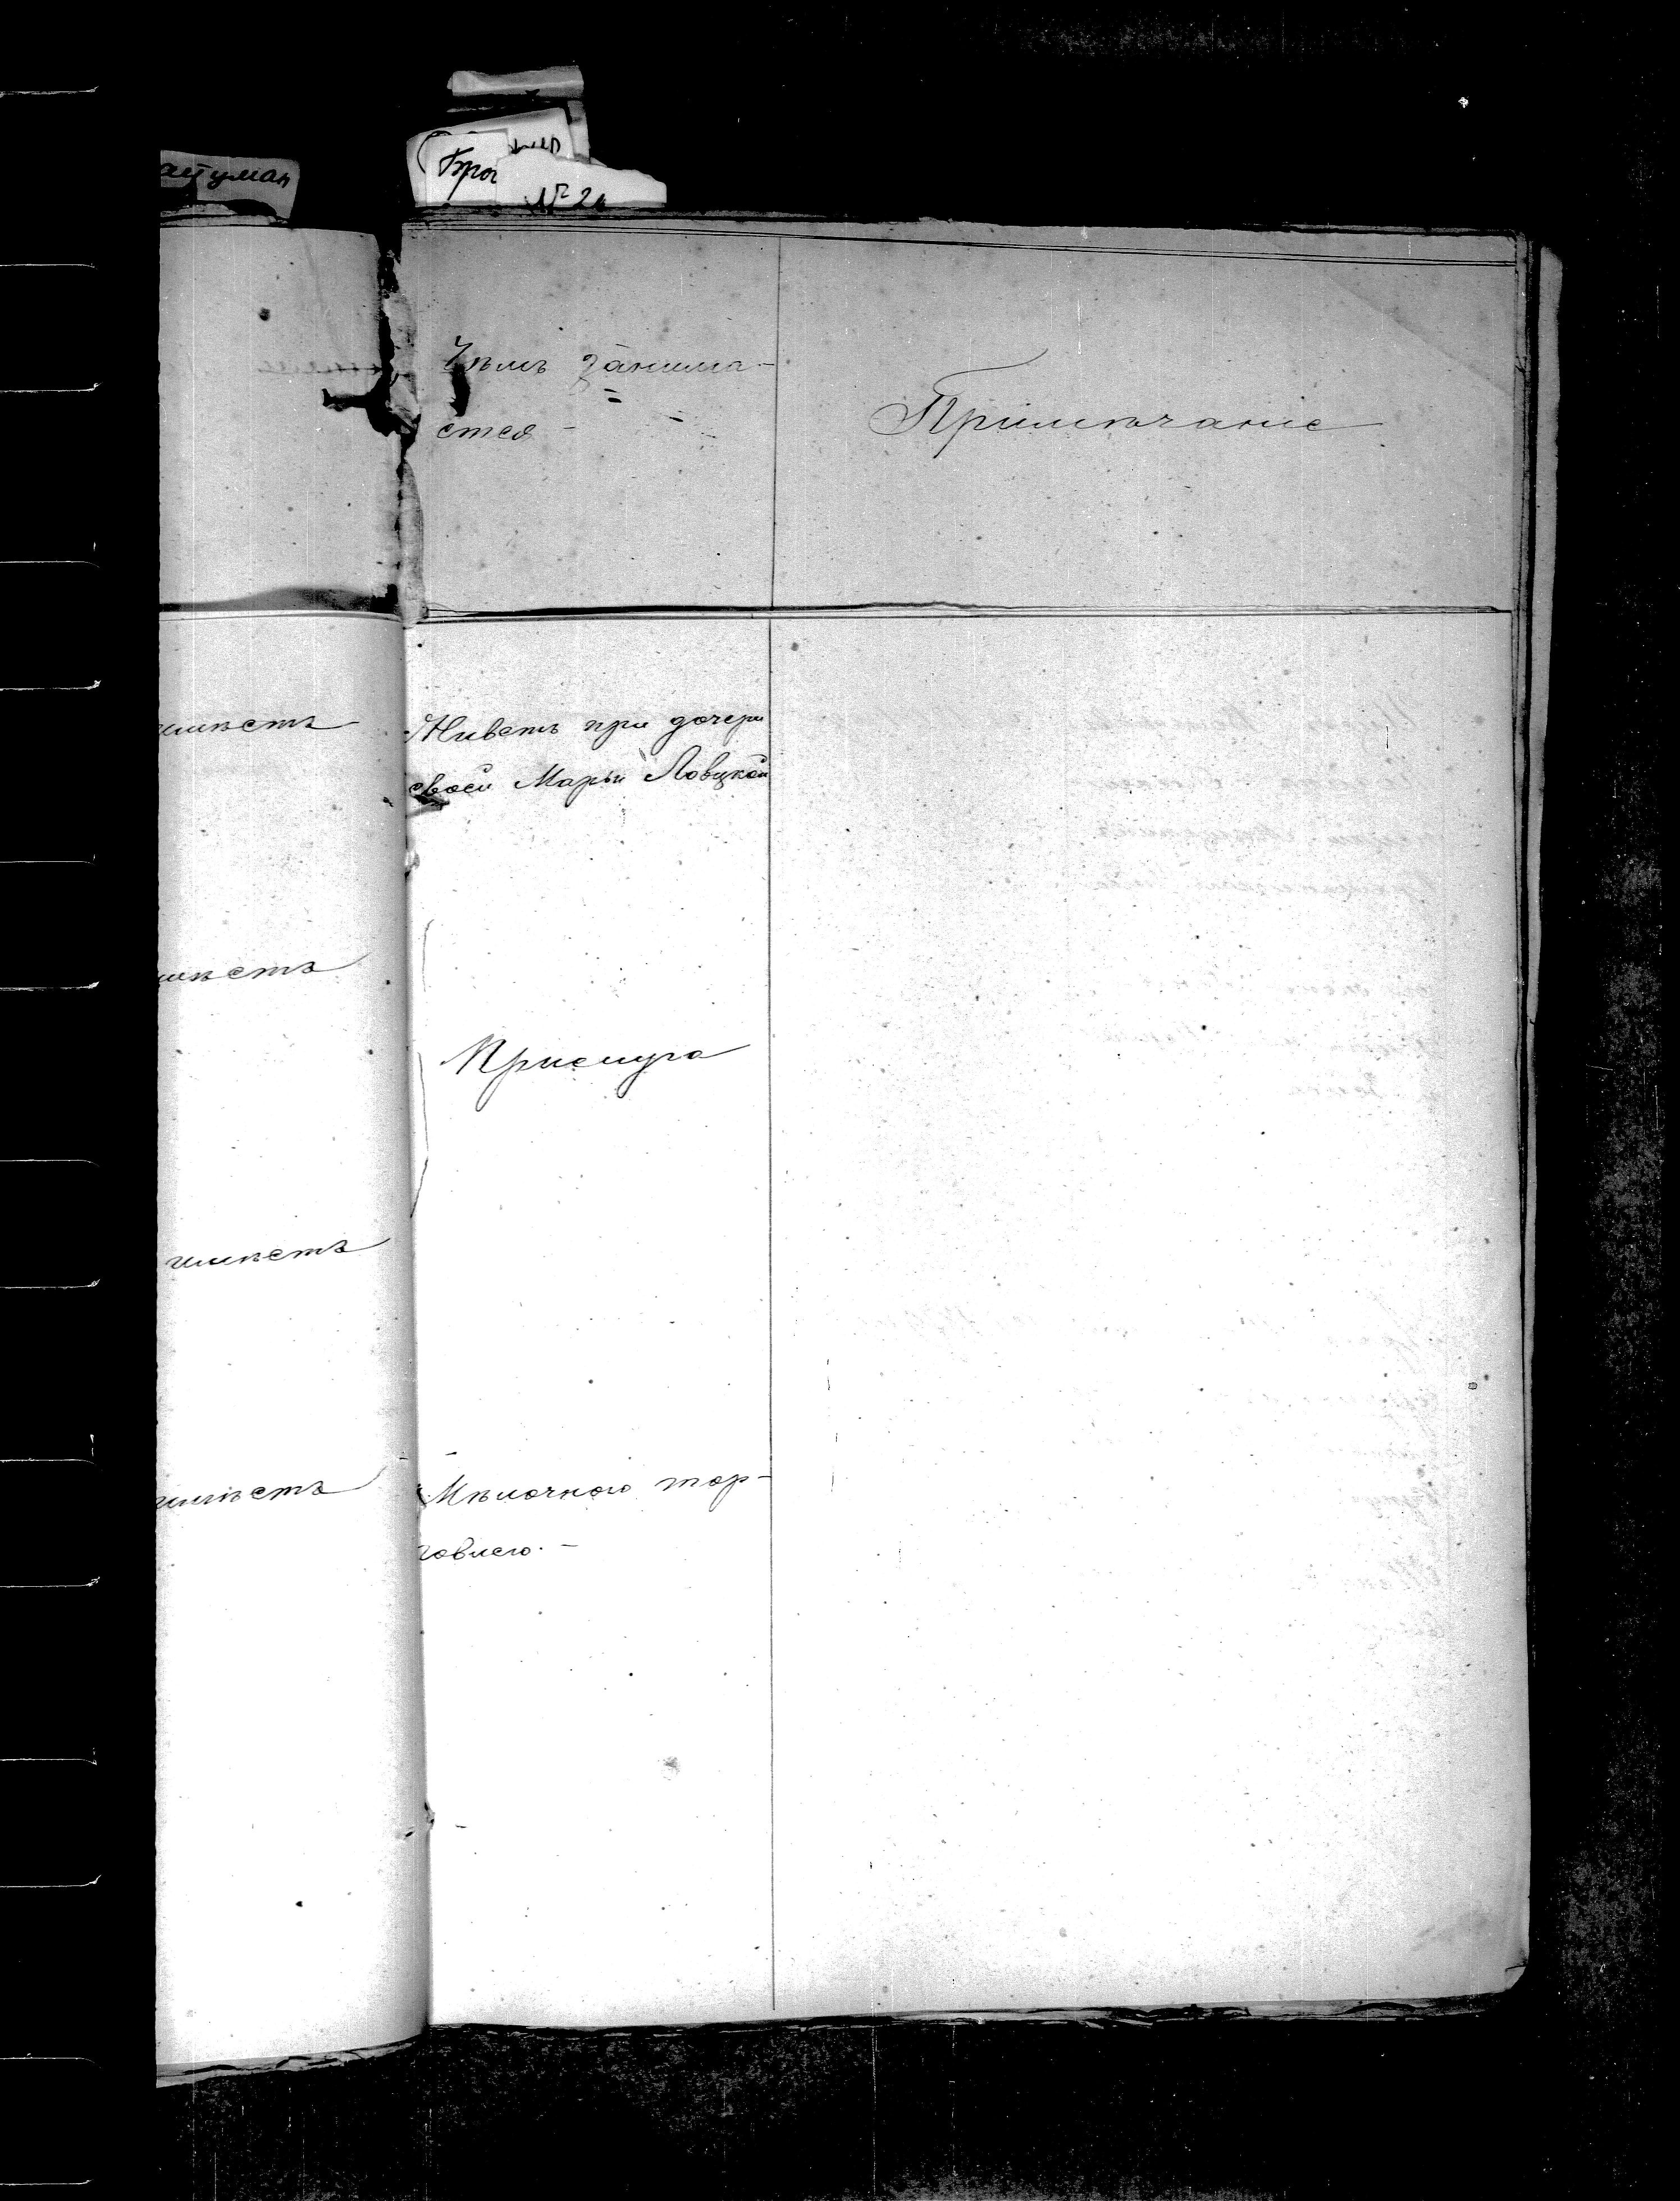 Бро
№ 2
Чѣмъ занима-
ется -
Примѣчаніе
имѣетъ
Живетъ при дочери
своей Марьи Ловцкой
имѣетъ
Прислуга
имѣетъ
имѣетъ
Мѣлочною тор-
говлею. -